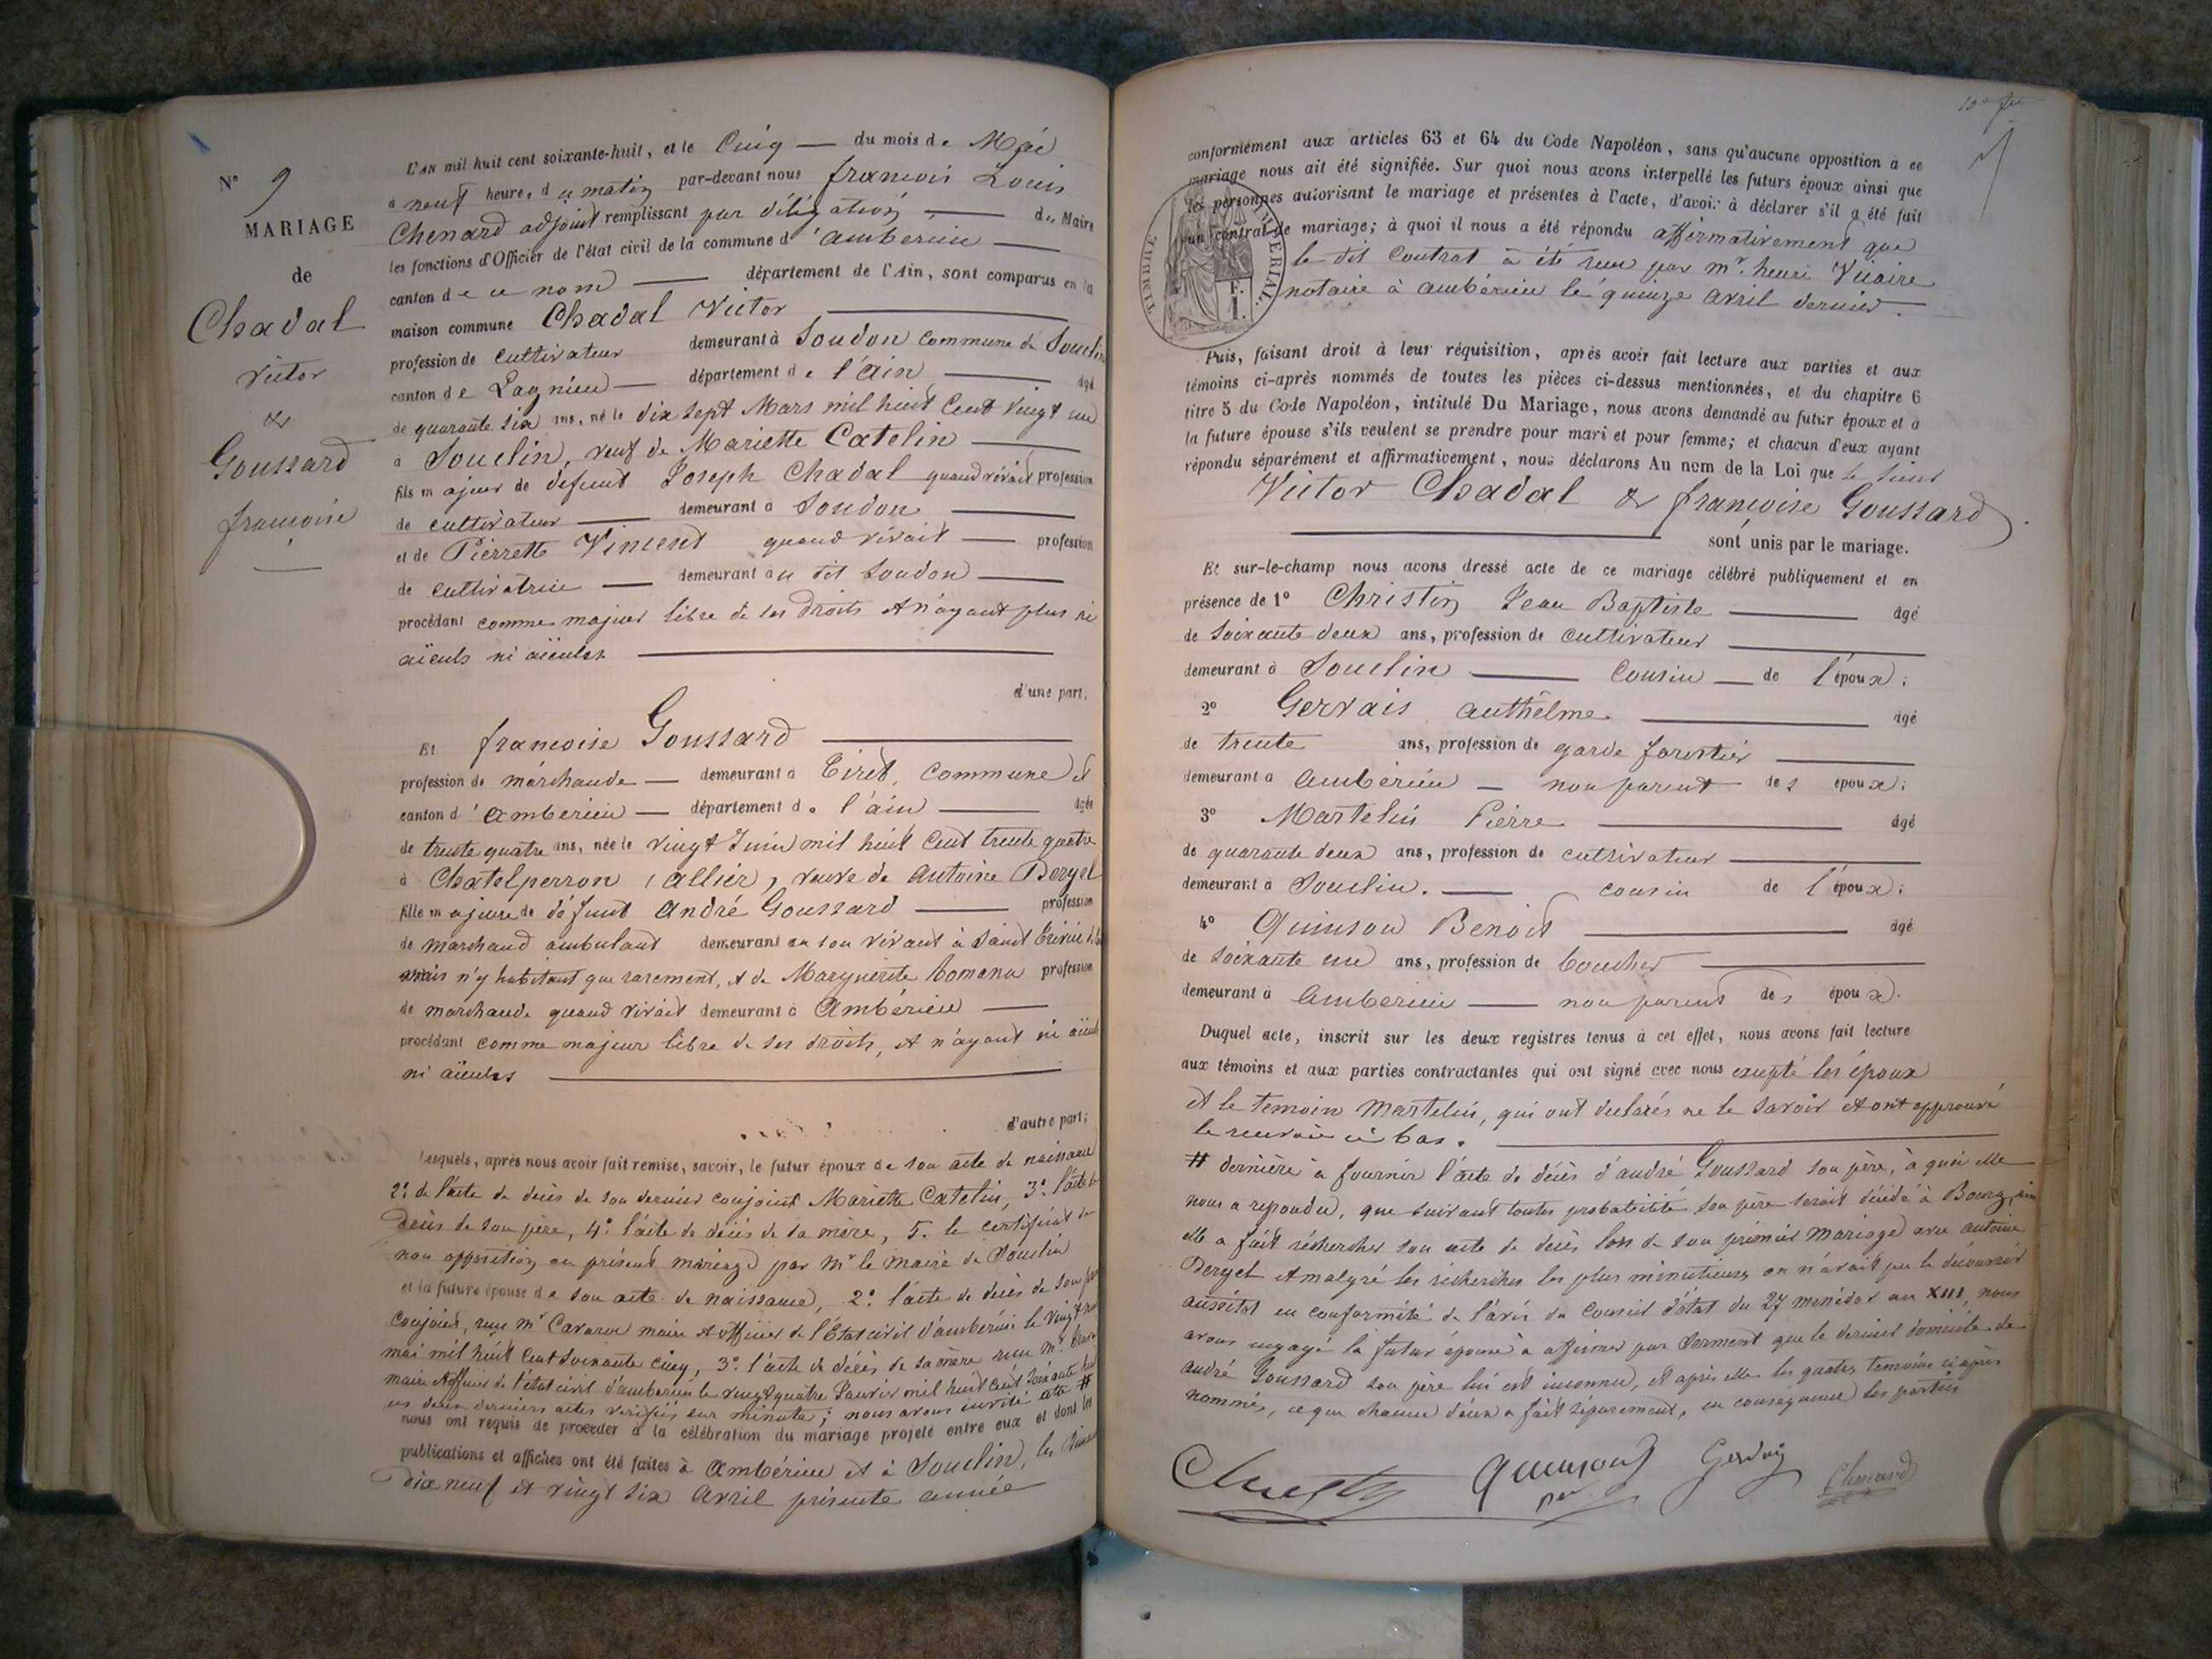 N° 9
MARIAGE
de
Chadal
Victor
&
Goussard
françoise
L'AN mil huit cent soixante-huit, et le Cinq du mois de Mai
à neuf heures du matin par-devant nous françois Louis
Chenard adjoint remplissant par délégation du Maire
les fonctions d'Officier de l'état civil de la commune d'ambérieu
canton de ce nom département de l'Ain, sont comparus en la
maison commune Chadal Victor
profession de cultivateur demeurant à Soudon commune de Souclin
canton de Lagnieu département de l'Ain âgé
de quarante six ans, né le dix sept Mars mil huit Cent vingt un
à Souclin, veuf de Mariette Catelin
fils majeur de défunt Joseph Chadal quand vivait profession
de cultivateur demeurant à Soudon
et de Pierrette Vincent quand vivait profession
de cultivatrice demeurant au dit Soudon
procédant comme majeur libre de ses droits et n'ayant plus ni
aïeuls ni aïeules
d'une part;
Et françoise Goussard
profession de marchande demeurant à Tiret, commune et
canton d'ambérieu département de l'ain âgée
de trente quatre ans, née le vingt Juin mil huit Cent trente quatre
à Chatelperron (allier), veuve de Antoine Dergel
fille majeure de défunt André Goussard profession
de marchand ambulant demeurant en son vivant à Saint
mais n'y habitant que rarement, et de Marguerite profession
de marchande quand vivait demeurant à Ambérieu
procédant comme majeur libre de ses droits, et n'ayant ni aïeuls
ni aïeules
d'autre part;
Lesquels, après nous avoir fait remise, savoir, le futur époux de son acte de naissance
2° de l'acte de décès de son dernier conjoint Mariette Catelin, 3° l'acte de
décès de son père, 4° l'acte de décès de sa mère, 5. le certificat de
non opposition au présent mariage par Mr le Maire de Souclin
et la future épouse de son acte de naissance, 2° l'acte de décès de son
conjoint, reçu Mr maire et officier de l'État civil d'ambérieu le vingt
mai mil huit Cent Soixante cinq, 3° l'acte de décès de sa mère reçu Mr
maire et officier de l'état civil d'ambérieu le vingt quatre Janvier mil huit Cent Soixante
ces deux derniers actes vérifiés sur minute; nous avons invité cette #
nous ont requis de procéder à la célébration du mariage projeté entre eux et dont les
publications et affiches ont été faites à Ambérieu et à Souclin, les
dix neuf et vingt six Avril présente année
conformément aux articles 63 et 64 du Code Napoléon, sans qu'aucune opposition à ce
mariage nous ait été signifiée. Sur quoi nous avons interpellé les futurs époux ainsi que
les personnes autorisant le mariage et présentes à l'acte, d'avoir à déclarer s'il a été fait
un contrat de mariage; à quoi il nous a été répondu affirmativement que
le dit Contrat a été reçu par mr. henri Vicaire
notaire à ambérieu le quinze avril dernier.
TIMBRE IMPÉRIAL.
F.
1.
Puis, faisant droit à leur réquisition, après avoir fait lecture aux parties et aux
témoins ci-après nommés de toutes les pièces ci-dessus mentionnées, et du chapitre 6
titre 5 du Code Napoléon, intitulé Du Mariage, nous avons demandé au futur époux et à
la future épouse s'ils veulent se prendre pour mari et pour femme; et chacun d'eux ayant
répondu séparément et affirmativement, nous déclarons Au nom de la Loi que le Sieur
Victor Chadal & françoise Goussard
sont unis par le mariage.
Et sur-le-champ nous avons dressé acte de ce mariage célébré publiquement et en
présence de 1° Christin Jean Baptiste âgé
de Soixante deux ans, profession de cultivateur
demeurant à Souclin Cousin de l'époux;
2° Gervais authelme âgé
de trente ans, profession de garde forestier
demeurant à Ambérieu non parent des époux;
3° Martelin Pierre âgé
de quarante deux ans, profession de cultivateur
demeurant à Souclin. cousin de l'époux;
4° Quinson Benoit âgé
de soixante un ans, profession de boucher
demeurant à Ambérieu non parent des époux.
Duquel acte, inscrit sur les deux registres tenus à cet effet, nous avons fait lecture
aux témoins et aux parties contractantes qui ont signé avec nous excepté les époux
et le temoin Martelin, qui ont declarés ne le savoir et ont approuvé
le renvoi ci bas.
# dernière à fournir l'acte de décès d'andré Goussard son père, à quoi elle
nous a répondu, que suivant toutes probabilité son père serait décédé à Bourg,
elle a fait rechercher son acte de décès lors de son premier Mariage avec antoine
Dergel et malgré les recherches les plus minutieuses on n'avait pu le découvrir
aussitot en conformité de l'avis du Conseil d'état du 27 messidor an XIII, nous
avons engagé la futur épouse à affirmer par Serment que le dernier domicile de
andré Goussard son père lui est inconnu, et après elle les quatre temoins ci après
nommés, ce que chacun d'eux a fait séparement, en conséquence les parties
Christin Quinson Gervais Chenard